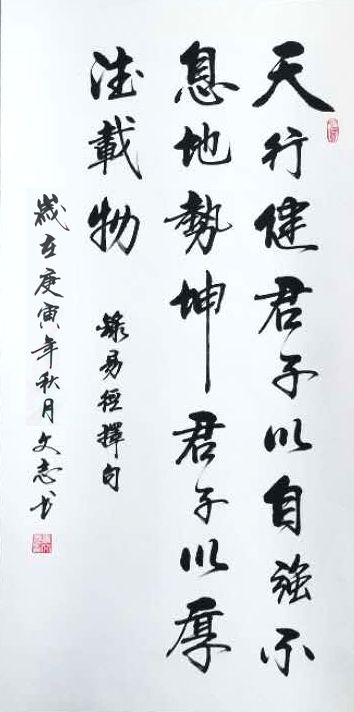 天行健君子以自強不
息地勢坤君子以厚
德載物
錄易經擇句
歲在庚寅年秋月文志书